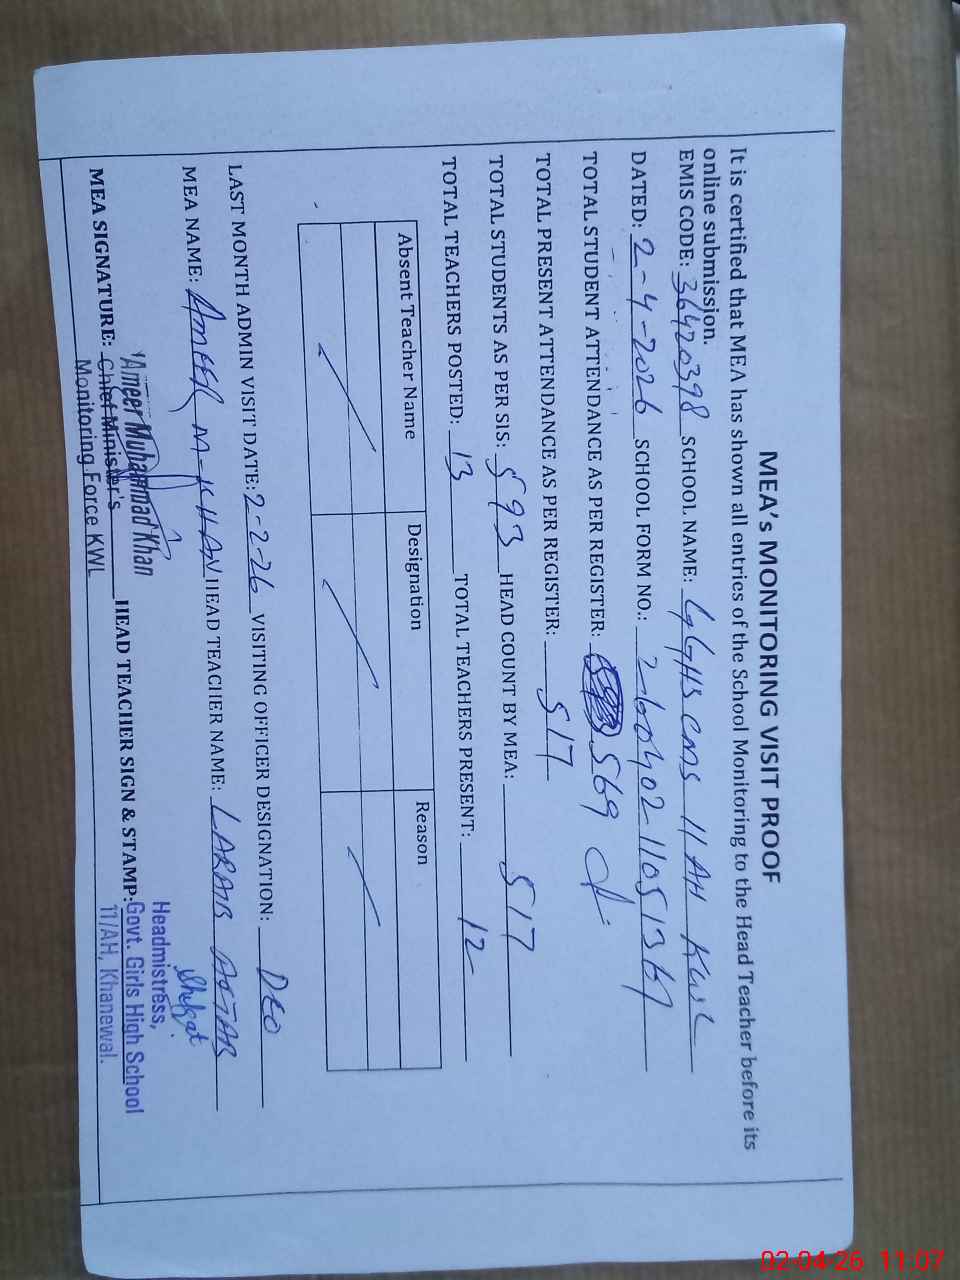 MEA's MONITORING VISIT PROOF
It is certified that MEA has shown all entries of the School Monitoring to the Head Teacher before its
online submission.
EMIS CODE: 36420398 SCHOOL NAME: GGHS CMS 11 AH KWL
DATED: 2-4-2026 SCHOOL FORM NO.: 260402-1105
TOTAL STUDENT ATTENDANCE AS PER REGISTER: 569
TOTAL PRESENT ATTENDANCE AS PER REGISTER: 517
TOTAL STUDENTS AS PER SIS: 593 HEAD COUNT BY MEA: 517
TOTAL TEACHERS POSTED: 13 TOTAL TEACHERS PRESENT: 12
Absent Teacher Name Designation Reason
LAST MONTH ADMIN VISIT DATE: 2-2-26 VISITING OFFICER DESIGNATION: DEO
MEA NAME: AMEER M-KHAN HEAD TEACHER NAME:
MEA SIGNATURE: HEAD TEACHER SIGN & STAMP:
Ameer Muhammad Khan
Chief Minister's
Monitoring Force KWL
Headmistress,
Govt. Girls High School
11/AH, Khanewal.
02-04-26 11:07